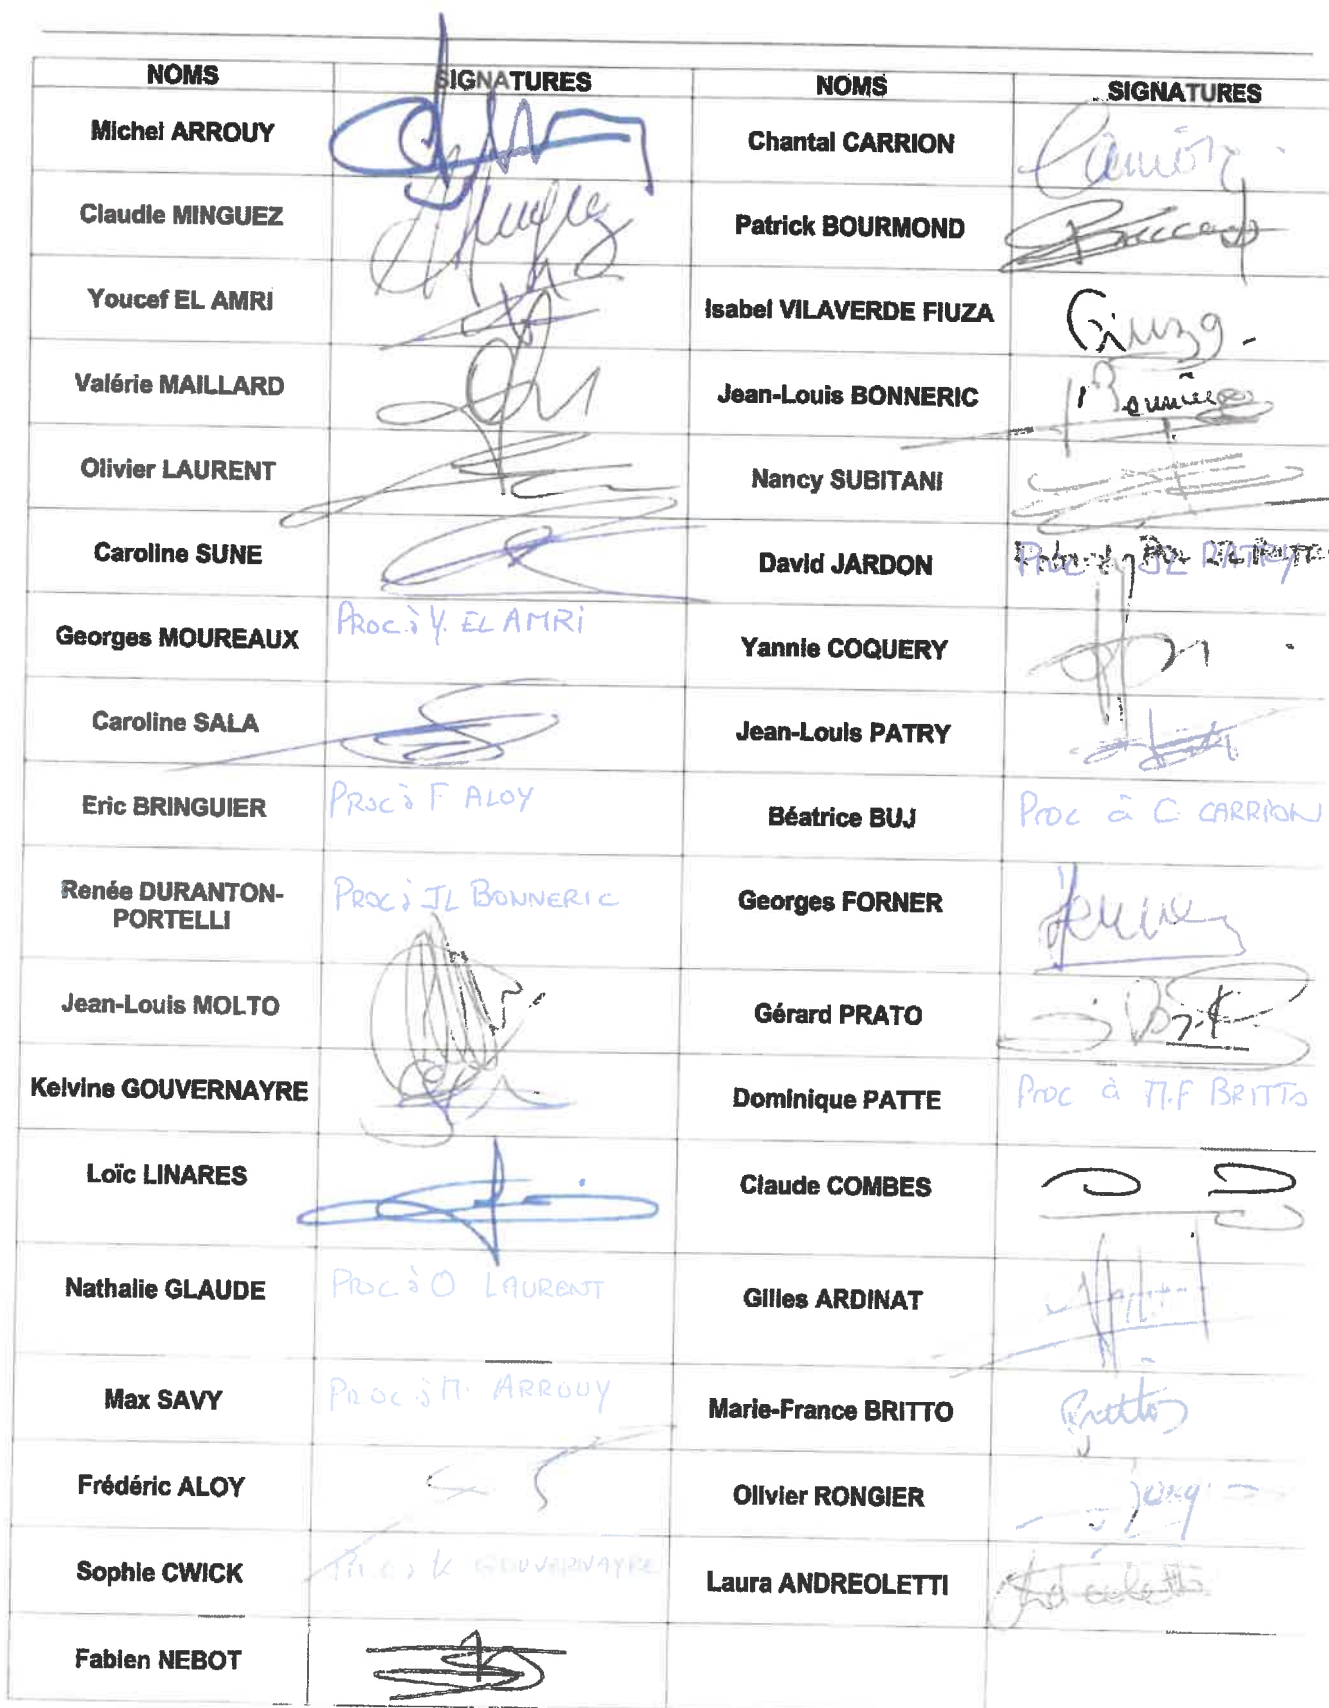 NOMS SIGNATURES NOMS SIGNATURES
Michel ARROUY Chantal CARRION Carrion
Claudie MINGUEZ Minguez Patrick BOURMOND
Youcef EL AMRI Isabel VILAVERDE FIUZA Fiuza.
Valérie MAILLARD Jean-Louis BONNERIC
Olivier LAURENT Nancy SUBITANI
Caroline SUNE David JARDON JL PATRY
Georges MOUREAUX PROC à Y. EL AMRI Yannie COQUERY
Caroline SALA Jean-Louis PATRY
Eric BRINGUIER PROC à F ALOY Béatrice BUJ PROC à C. CARRION
Renée DURANTON-
PORTELLI PROC à JL BONNERIC Georges FORNER
Jean-Louis MOLTO Gérard PRATO
Kelvine GOUVERNAYRE Dominique PATTE PROC à M.F BRITTO
Loïc LINARES Claude COMBES
Nathalie GLAUDE PROC à O LAURENT Gilles ARDINAT
Max SAVY PROC à M. ARROUY Marie-France BRITTO Britto
Frédéric ALOY Olivier RONGIER
Sophie CWICK PROC à K GOUVERNAYRE Laura ANDREOLETTI
Fabien NEBOT